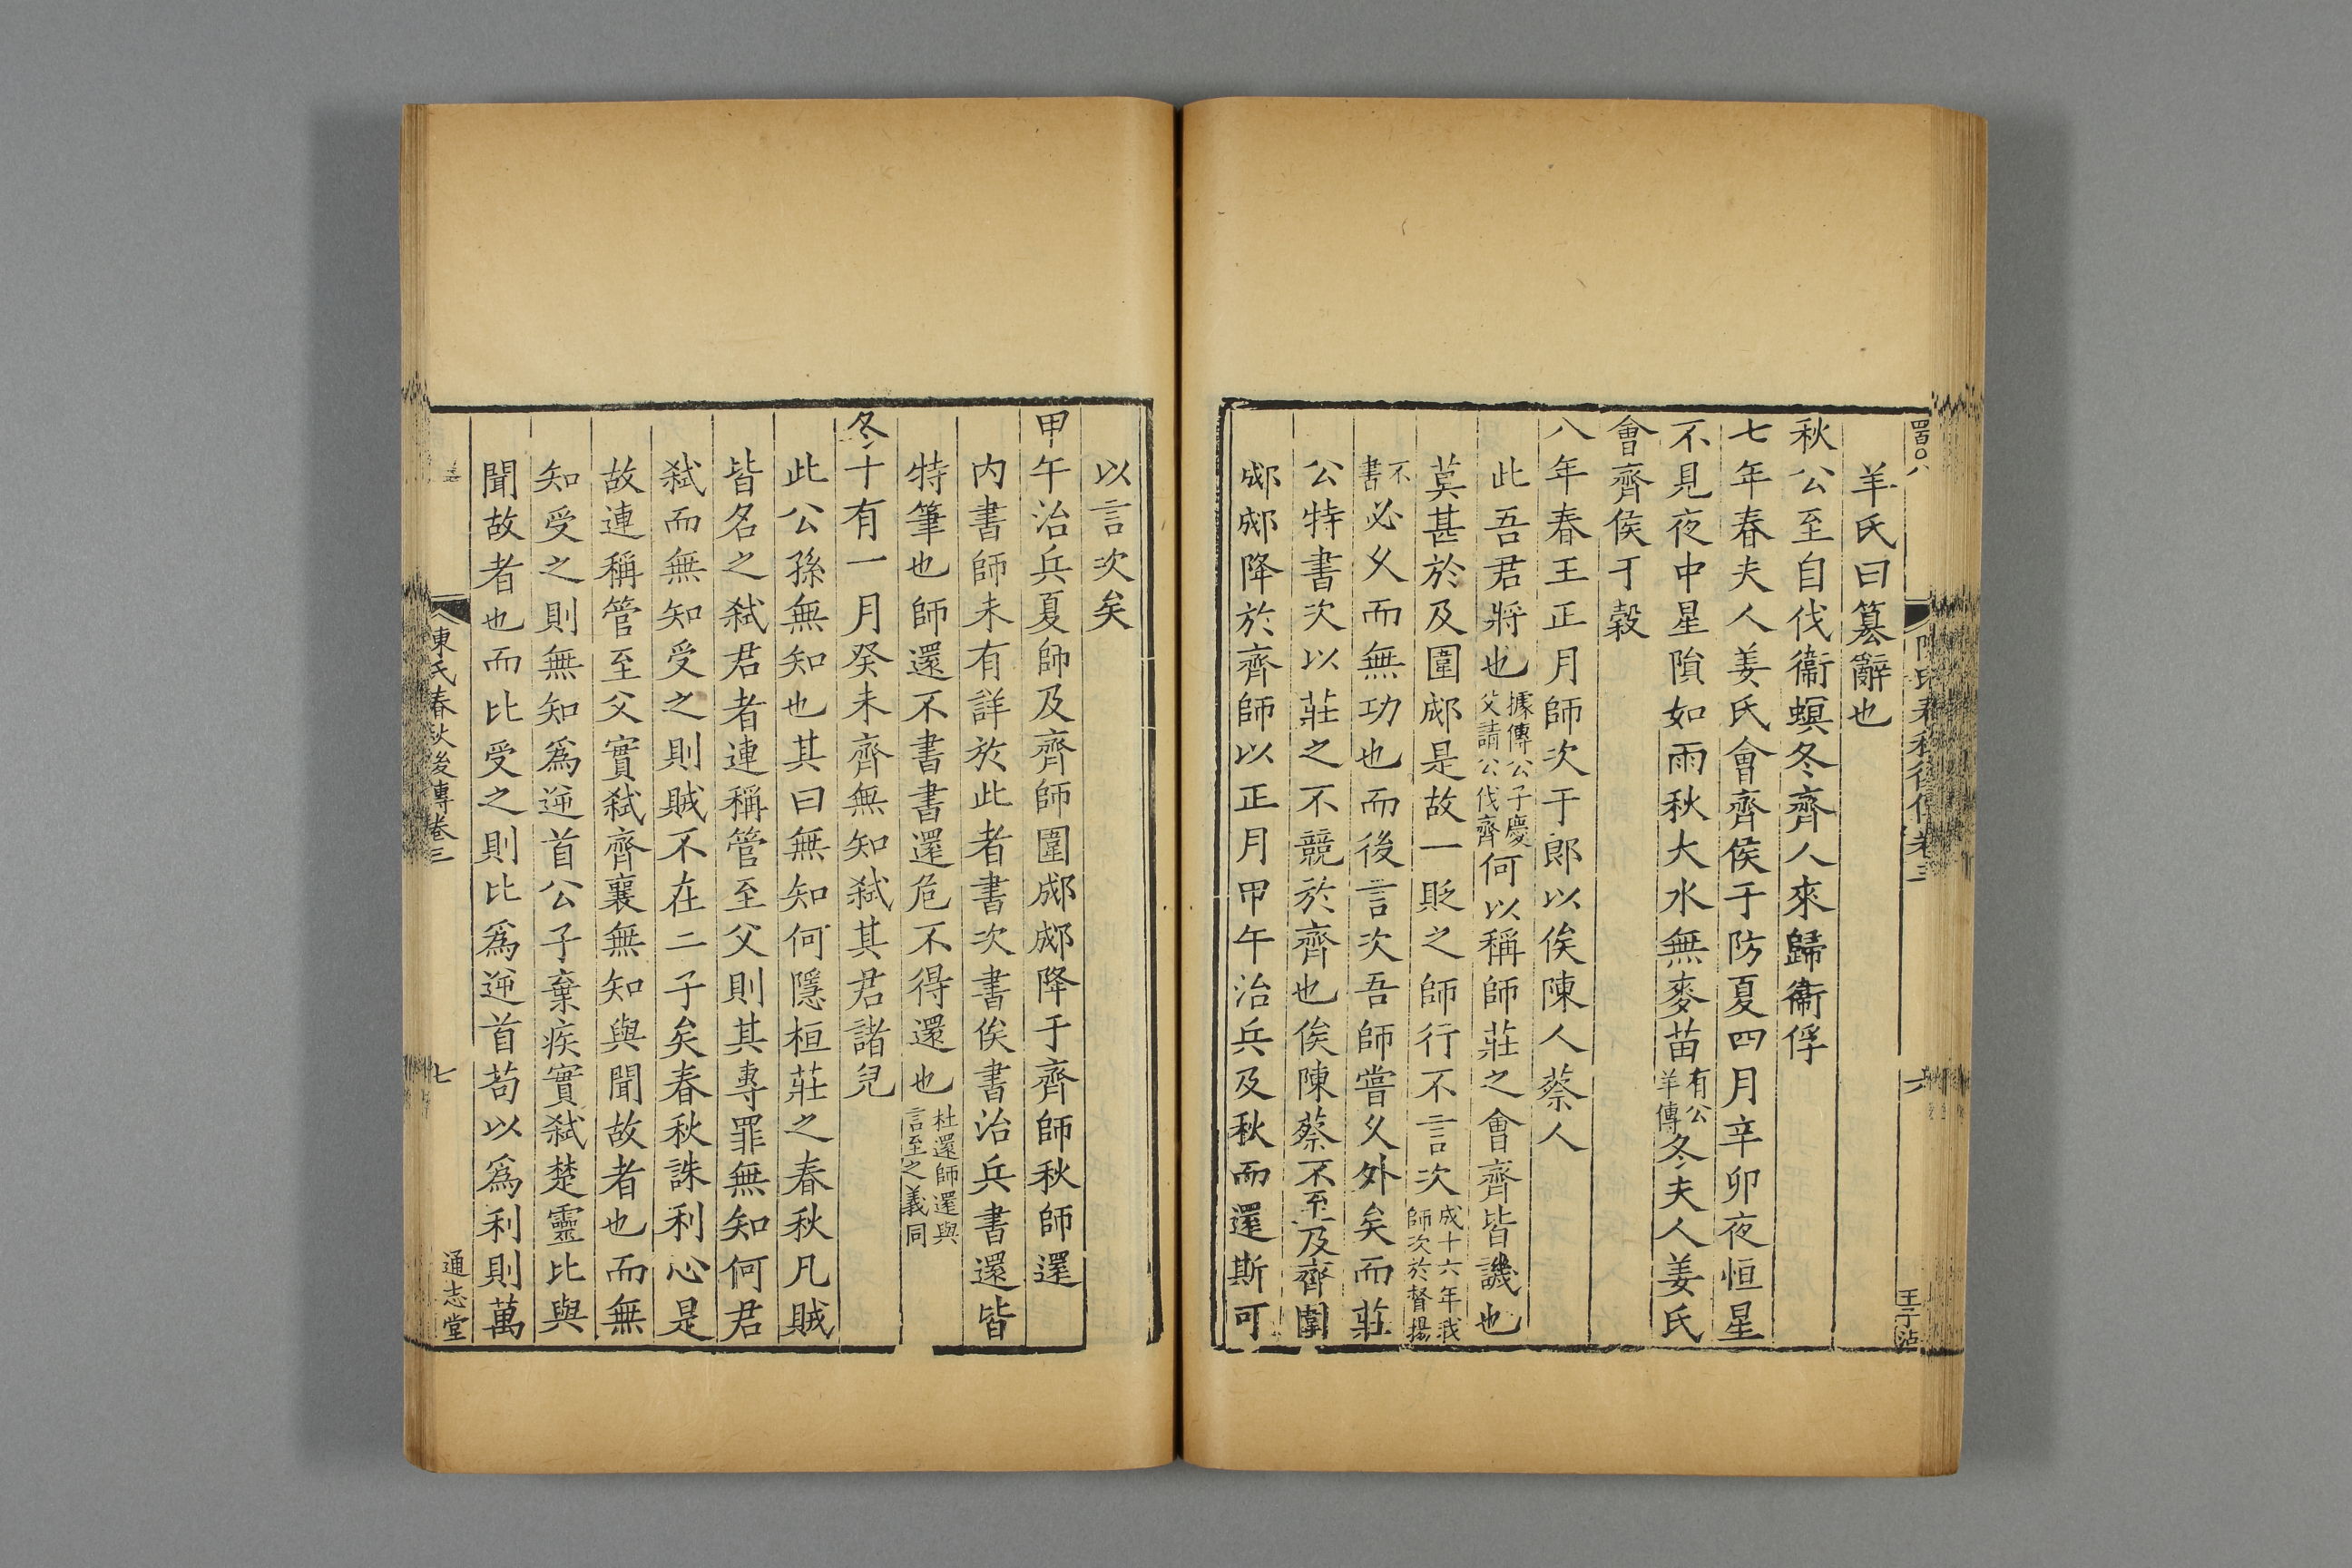 四百〇八
陳氏春秋後傳卷三
六
王子沾
羊氏曰簒辭也
秋公至自伐衞螟冬齊人來歸衞俘
七年春夫人姜氏會齊侯于防夏四月辛卯夜恒星
不見夜中星隕如雨秋大水無麥苗有公羊傳冬夫人姜氏
會齊侯于穀
八年春王正月師次于郎以俟陳人蔡人
此吾君將也據傳公子慶父請公伐齊何以稱師莊之會齊皆譏也
莫甚於及圍郕是故一貶之師行不言次成十六年我師次於督揚
不書必久而無功也而後言次吾師嘗久外矣而莊
公特書次以莊之不競於齊也俟陳蔡不至及齊圍
郕郕降於齊師以正月甲午治兵及秋而還斯可
以言次矣
甲午治兵夏師及齊師圍郕郕降于齊師秋師還
内書師未有詳於此者書次書俟書治兵書還皆
特筆也師還不書書還危不得還也杜還師還與言至之義同
冬十有一月癸未齊無知弑其君諸兒
此公孫無知也其曰無知何隱桓莊之春秋凡賊
皆名之弑君者連稱管至父則其專罪無知何君
弑而無知受之則賊不在二子矣春秋誅利心是
故連稱管至父實弑齊襄無知與聞故者也而無
知受之則無知爲逆首公子棄疾實弑楚靈比與
聞故者也而比受之則比爲逆首苟以爲利則萬
陳氏春秋後傳卷三
七
通志堂